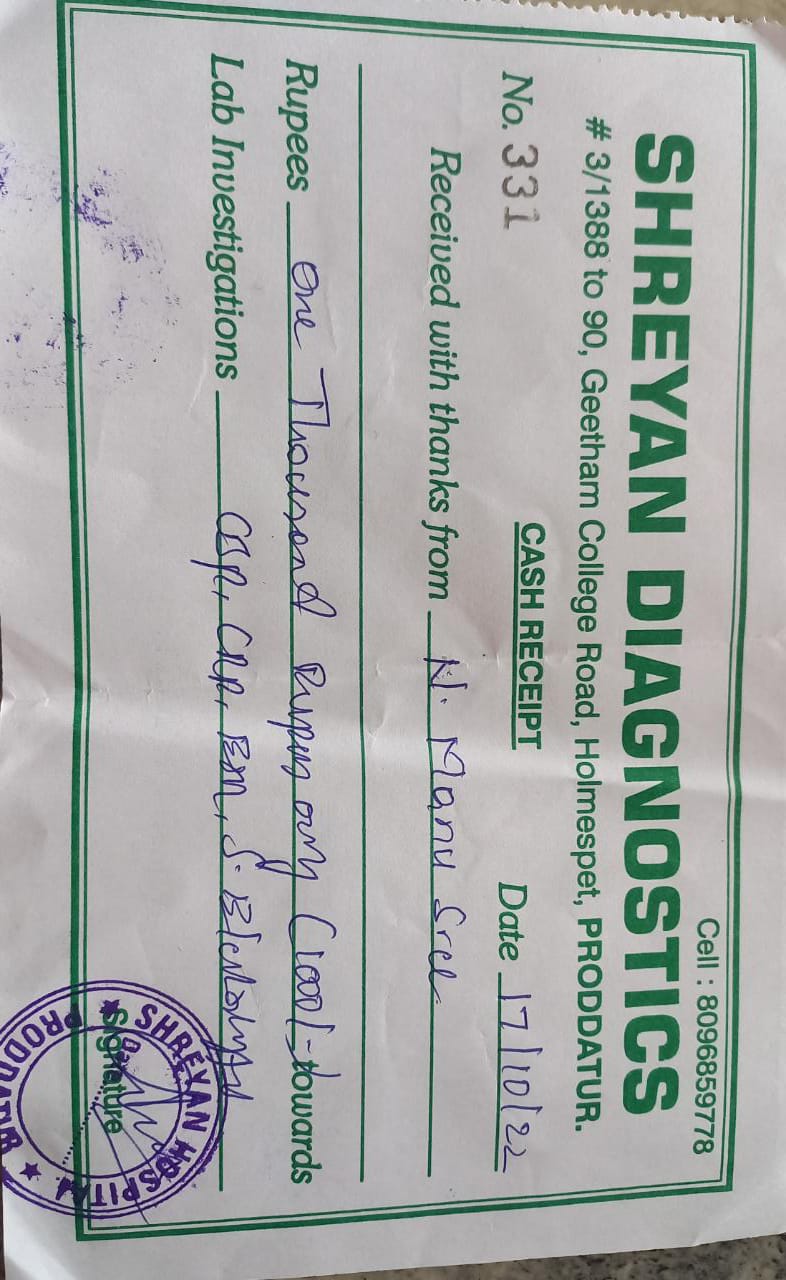 Cell : 8096859778
SHREYAN DIAGNOSTICS
# 3/1388 to 90, Geetham College Road, Holmespet, PRODDATUR.
CASH RECEIPT
No. 331 Date 17/10/22
Received with thanks from N. Manu Sree
Rupees One Thousand Rupees only (1000/- towards
Lab Investigations CBP, CRP, S.
SHREYAN HOSPITAL
Signature
PRODDATUR